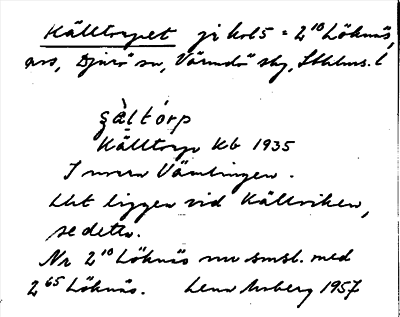 Källtorpet ji kol 5 = 2¹⁰ Löknäs,
ars, Djurö sn, Värmdö skg, Sthlms. l
şàltórp
Källtorp Kb 1935
I norra Vämlingen.
Det ligger vid Källviken,
se detta.
Nr 2¹⁰ Löknäs nu smsl. med
2⁶⁵ Löknäs. Lena Moberg 1957